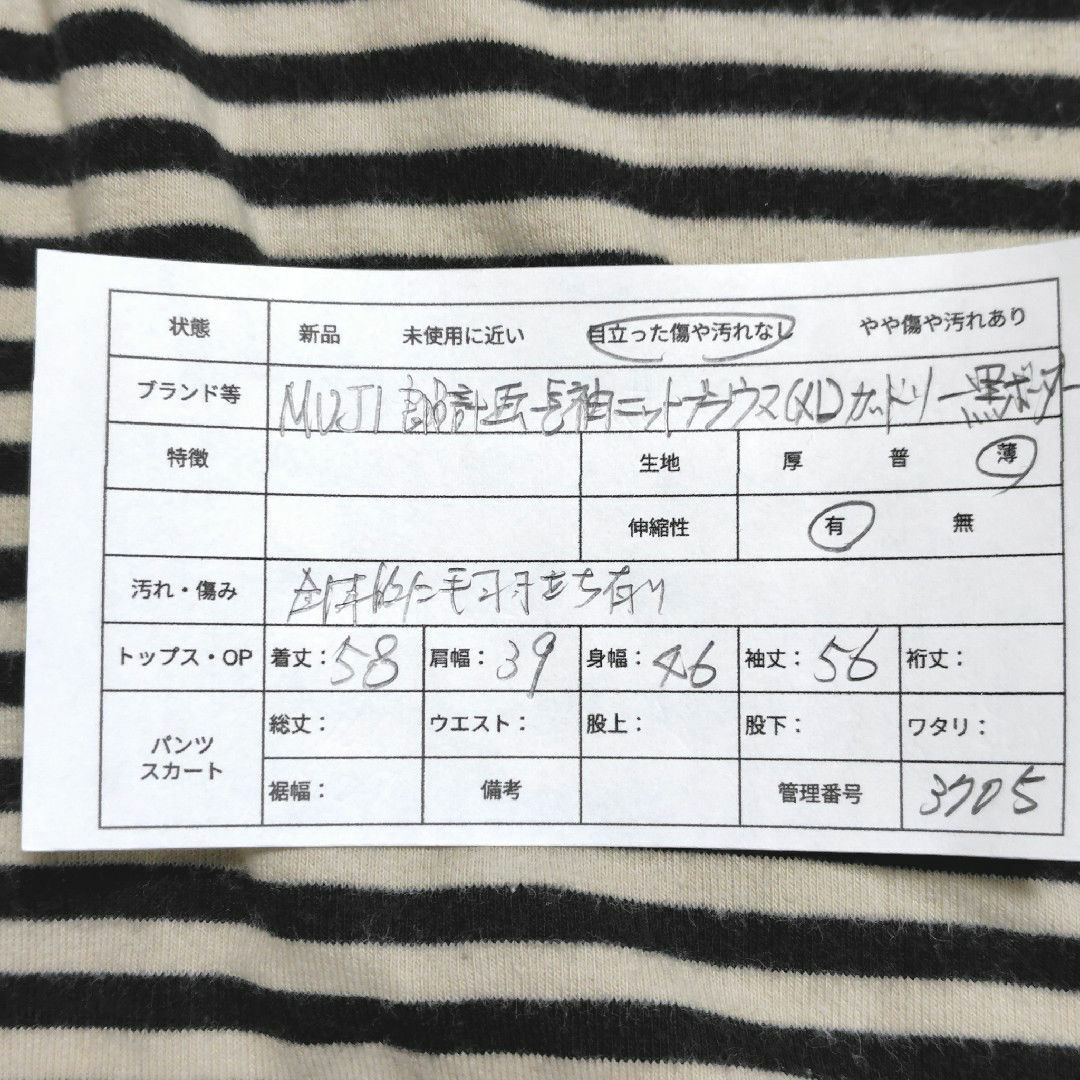 状態 新品 未使用に近い 目立った傷や汚れなし やや傷や汚れあり
ブランド等 MUJI 良品計画 長袖ニットブラウス(XL) 黒ボーダー
特徴 生地 厚 普 薄
伸縮性 有 無
汚れ・傷み 全体的に毛羽立ち有り
トップス・OP 着丈：58 肩幅：39 身幅：46 袖丈：56 裄丈：
パンツ 総丈： ウエスト： 股上： 股下： ワタリ：
スカート 裾幅： 備考 管理番号 3705